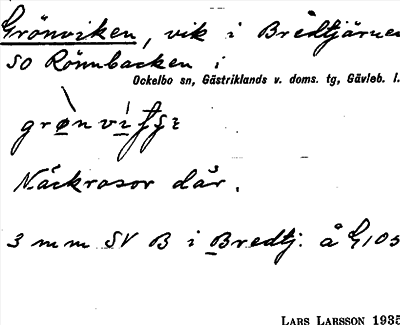 Grönviken, vik i Bredtjärnen
SO Rönnbacken i
Ockelbo sn, Gästriklands v. doms. tg, Gävleb. l.
Näckrosor där.
3 mm SV B i Bredtj. å G105
LARS LARSSON 1935